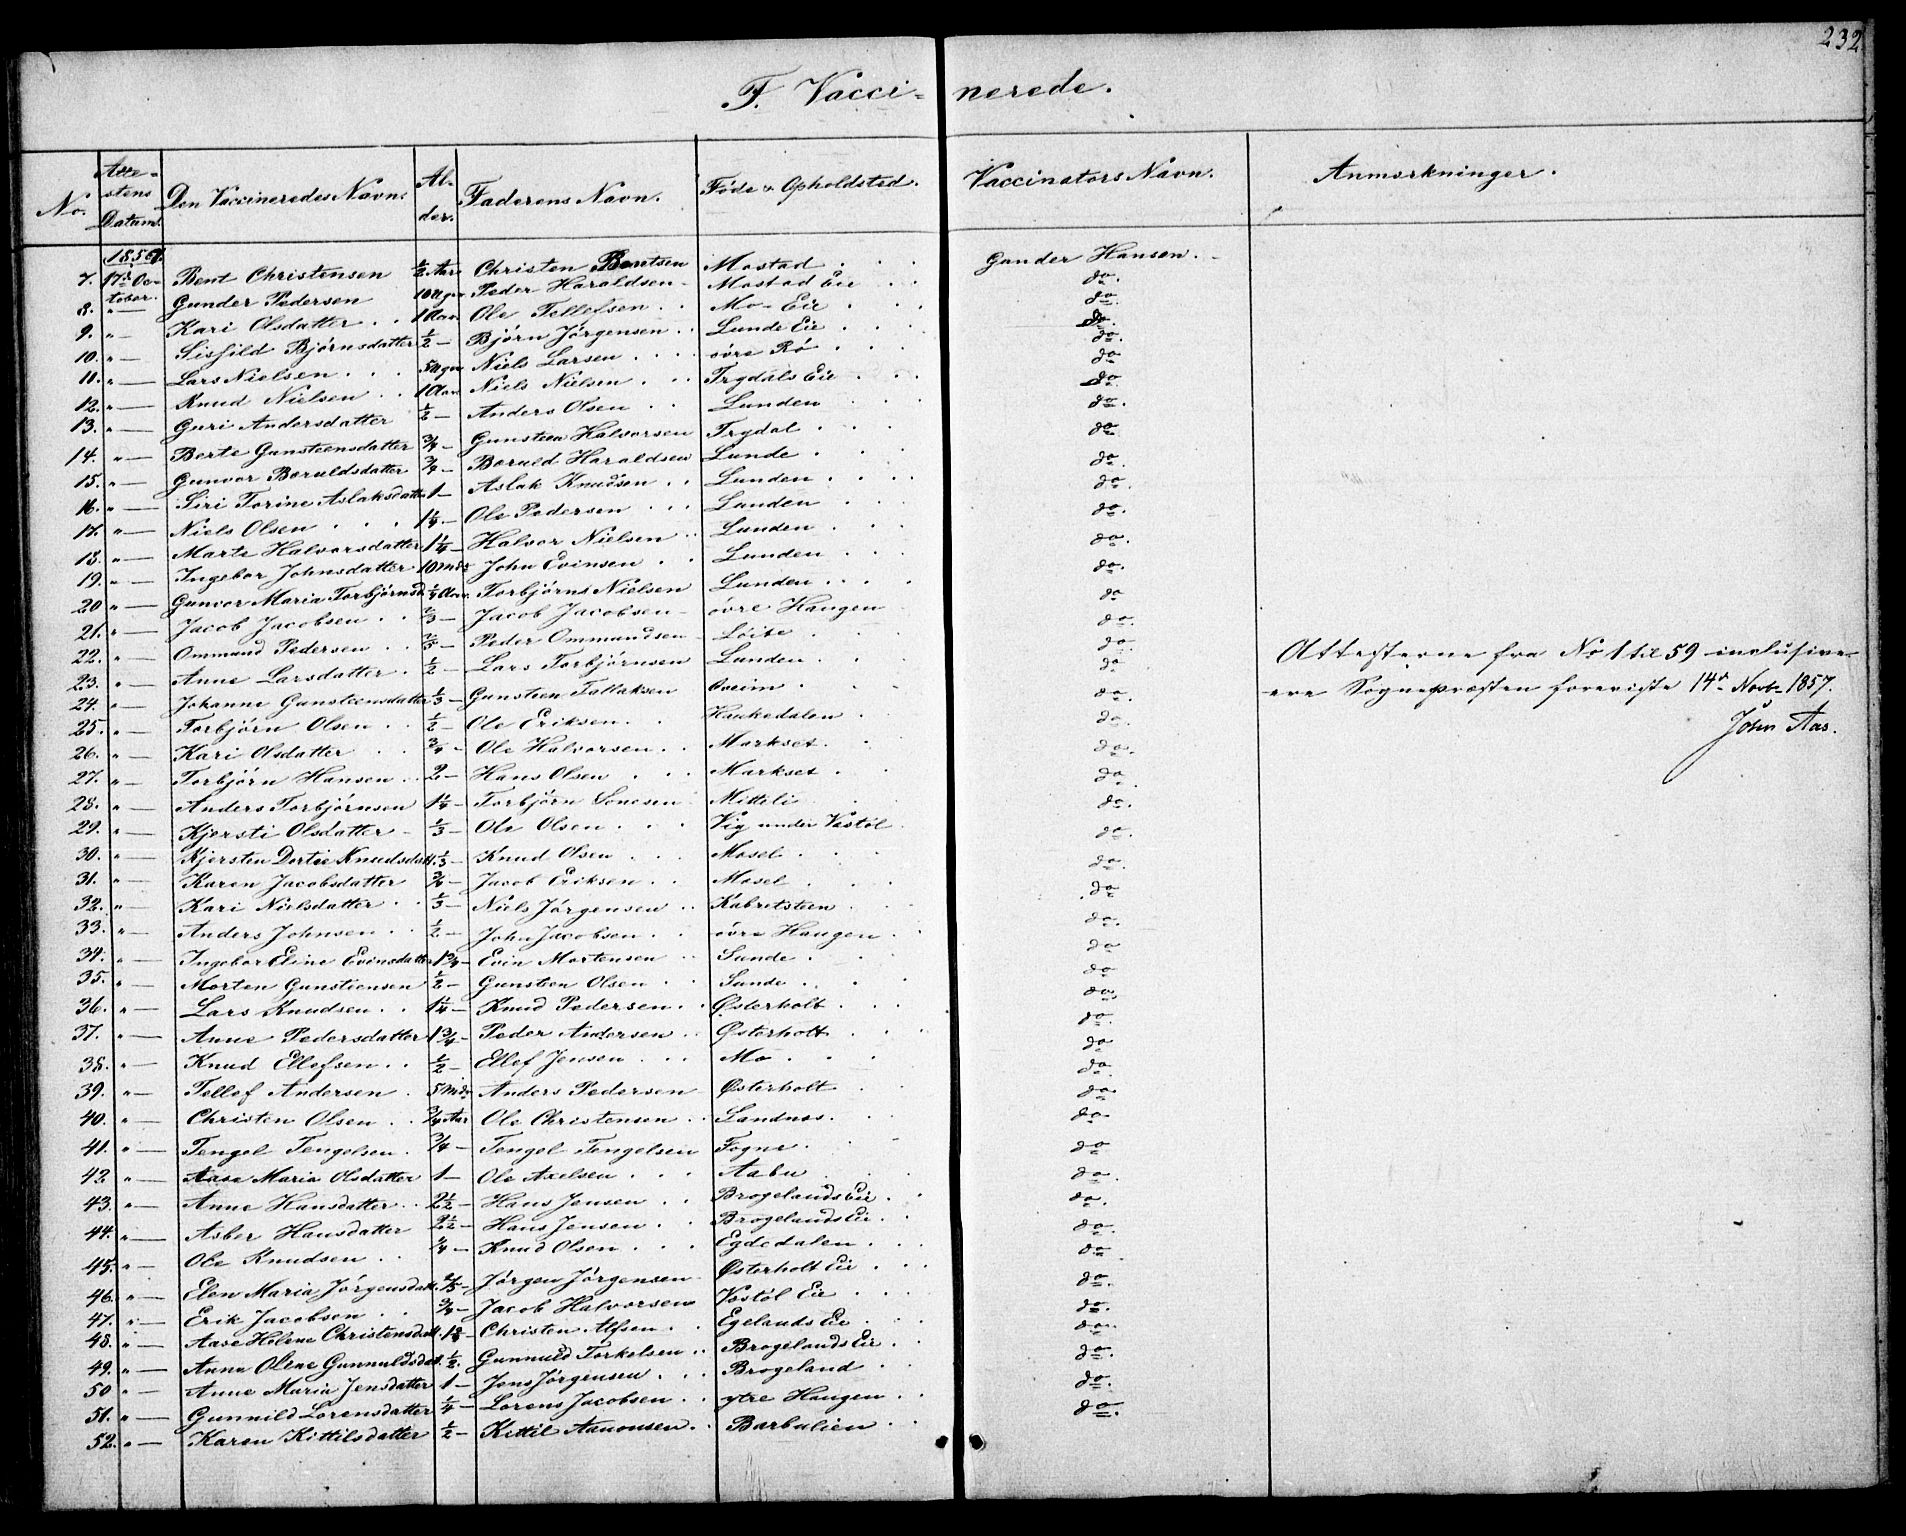 232
F. Vaccinerede.
No. Attestens Datum. Den Vaccineredes Navn. Alder. Faderens Navn. Føde & Opholdsted. Vaccinators Navn. Anmærkninger.
1857.
7. 17de October. Bent Christensen ½ Aar Christen Bentsen Mostad Gunder Hansen.
8. " — Gunder Pedersen 10 Ugr Peder Haraldsen Mostad Eie do.
9. " — Kari Olsdatter 1 Aar Ole Tellefsen Mo-Eie do.
10. " — Sisfild Bjørnsdatter ½ — Bjørn Jørgensen Lunde Eie do.
11. " — Lars Nielsen 5 Ugr Niels Larsen øvre Rø do.
12. " — Knud Nielsen 1 Aar Niels Nielsen Trydals Eie do.
13. " — Guri Andersdatter ½ — Anders Olsen Lunden do.
14. " — Berte Gunsteensdatter ¾ — Gunsteen Halvorsen Trydal do.
15. " — Gunvor Boruldsdatter ¾ — Boruld Haraldsen Lunde do.
16. " — Siri Torine Aslaksdatter 1 — Aslak Knudsen Lunden do.
17. " — Niels Olsen 1¼ — Ole Pedersen Lunden do.
18. " — Marte Halvorsdatter 1¼ — Halvor Nielsen Lunden do.
19. " — Ingebor Johnsdatter 10 Mdr John Evinsen Lunden do.
20 " — Gunvor Maria Torbjørnsd. Aar. Torbjørn Nielsen Lunden do
21. " — Jacob Jacobsen ⅔ — Jacob Jacobsen øvre Haugen do.
22. " — Ommund Pedersen Peder Ommundsen Løite do.
23. " — Anne Larsdatter ½ — Lars Torbjørnsen Lunden do
24. " — Johanne Gunsteensdatter ⅓ — Gunsteen Tallaksen do.
25. " — Torbjørn Olsen ½ — Ole Eriksen Haukedalen do.
26. " — Kari Olsdatter ¾ — Ole Halvorsen Markset do.
27. " — Torbjørn Hansen 2 — Hans Olsen Markset do.
28. " — Anders Torbjørnsen 1¼ — Torbjørn Sonesen Mitteli do.
29. " — Kjersti Olsdatter ⅓ — Ole Olsen Vig under Vestøl do.
30. " — Kjersten Dortie Knudsdatt. ⅓ — Knud Olsen Mosel do.
31. " — Karen Jacobsdatter ¾ — Jacob Eriksen Mosel do.
32. " — Kari Nielsdatter ⅓ — Niels Jørgensen Kabretsteen do.
33. " — Anders Johnsen ½ — John Jacobsen øvre Haugen do.
34. " — Ingebor Eline Evinsdatter 1¾ — Evin Mortensen Sunde do.
35. " — Morten Gunstiensen ½ — Gunstien Olsen Sunde do.
36. " — Lars Knudsen 1¼ — Knud Pedersen Østerholt do.
37. " — Anne Pedersdatter 1¾ — Peder Andersen Østerholt do.
38. " — Knud Ellefsen ½ — Ellef Jensen Mo do.
39. " — Tellef Andersen 5 Mdr Anders Pedersen Østerholt do.
40. " — Christen Olsen ¾ Aar Ole Christensen Landnes do.
41. " — Tengel Tengelsen ¾ — Tengel Tengelsen Fogne do.
42 " — Aase Maria Olsdatter 1 — Ole Axelsen Aabu do.
43. " — Anne Hansdatter 2½ — Hans Jensen Brogelands Eie do.
44. " — Asber Hansdatter 2½ — Hans Jensen Brogelands Eie do.
45. " — Ole Knudsen ¼ — Knud Olsen Egdedalen do.
46. " — Elen Maria Jørgensdatt. ⅖ — Jørgen Jørgensen Østerholt Eie do.
47. " — Erik Jacobsen ¾ — Jacob Halvorsen Vestøl Eie do.
48. " — Aase Helene Christensdatt. Christen Alfsen Egelands Eie do.
49. " — Anne Olene Gunnuldsdat. ½ Gunnuld Torkelsen Brogelands Eie do.
50 " — Anne Maria Jensdatter 1 — Jens Jørgensen Brogeland do.
51. " — Gunnild Lorensdatter ¼ — Lorens Jacobsen ytre Haugen do.
52. " — Karen Kittilsdatter ½ — Kittil Aanonsen Barbulien
Attesterne fra No 1 til 59 inclusive
ere Sognepræsten foreviste 14de Novbr 1857.
John Aas.